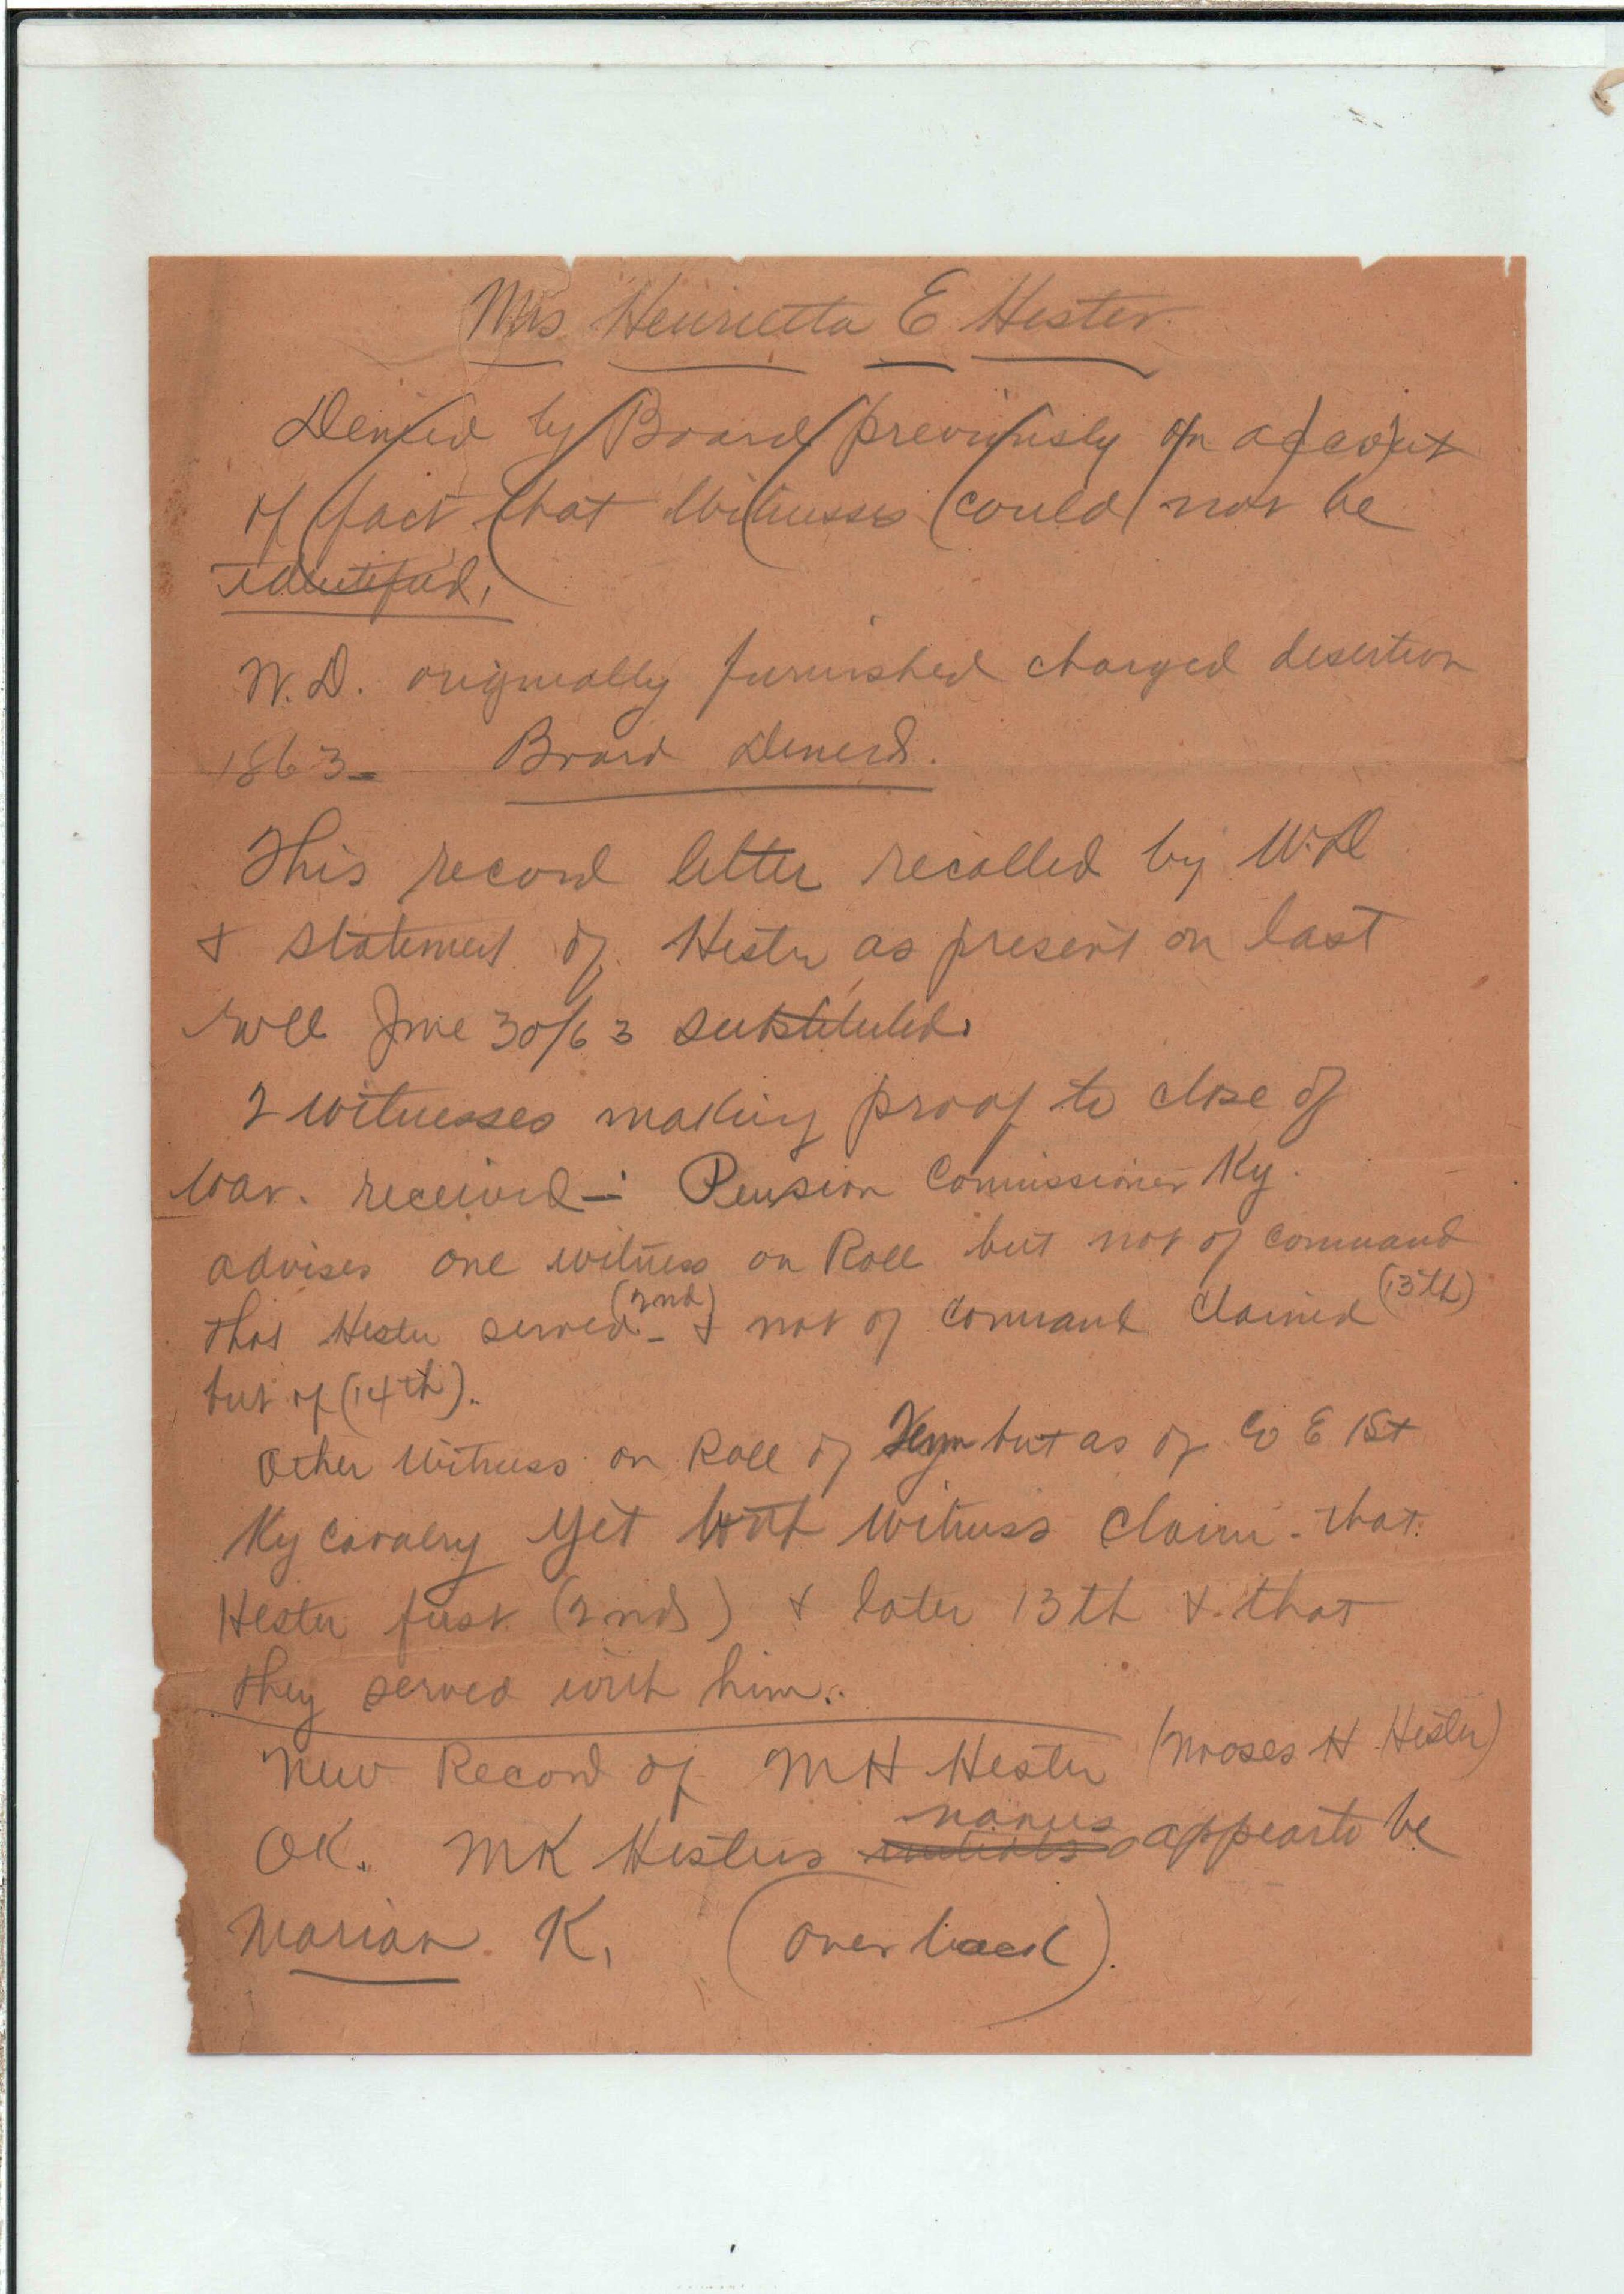 Mrs Henrietta E Hester
Denied by Board previously on account
of fact that Witnesses could not be
identified.
W.D. originally furnished charged desertion
1863 - Board Denied.
This record letter recalled by W.D
& statement of Hester as present on last
roll June 30/63 substituted.
2 witnesses making proof to close of
War. received - Pension Commissioner Ky.
advises one witness on Roll but not of command
that Hester served (2nd) - & not of command claimed (13th)
but of (14th).
Other Witness on Roll of but as of Co E 1st
Ky Cavalry yet both witness claim - that
Hester first (2nd) & later 13th & that
they served with him.
New Record of M H Hester (Moses H Hester)
OK. MK Hesters names appears to be
Marian K. (over back)